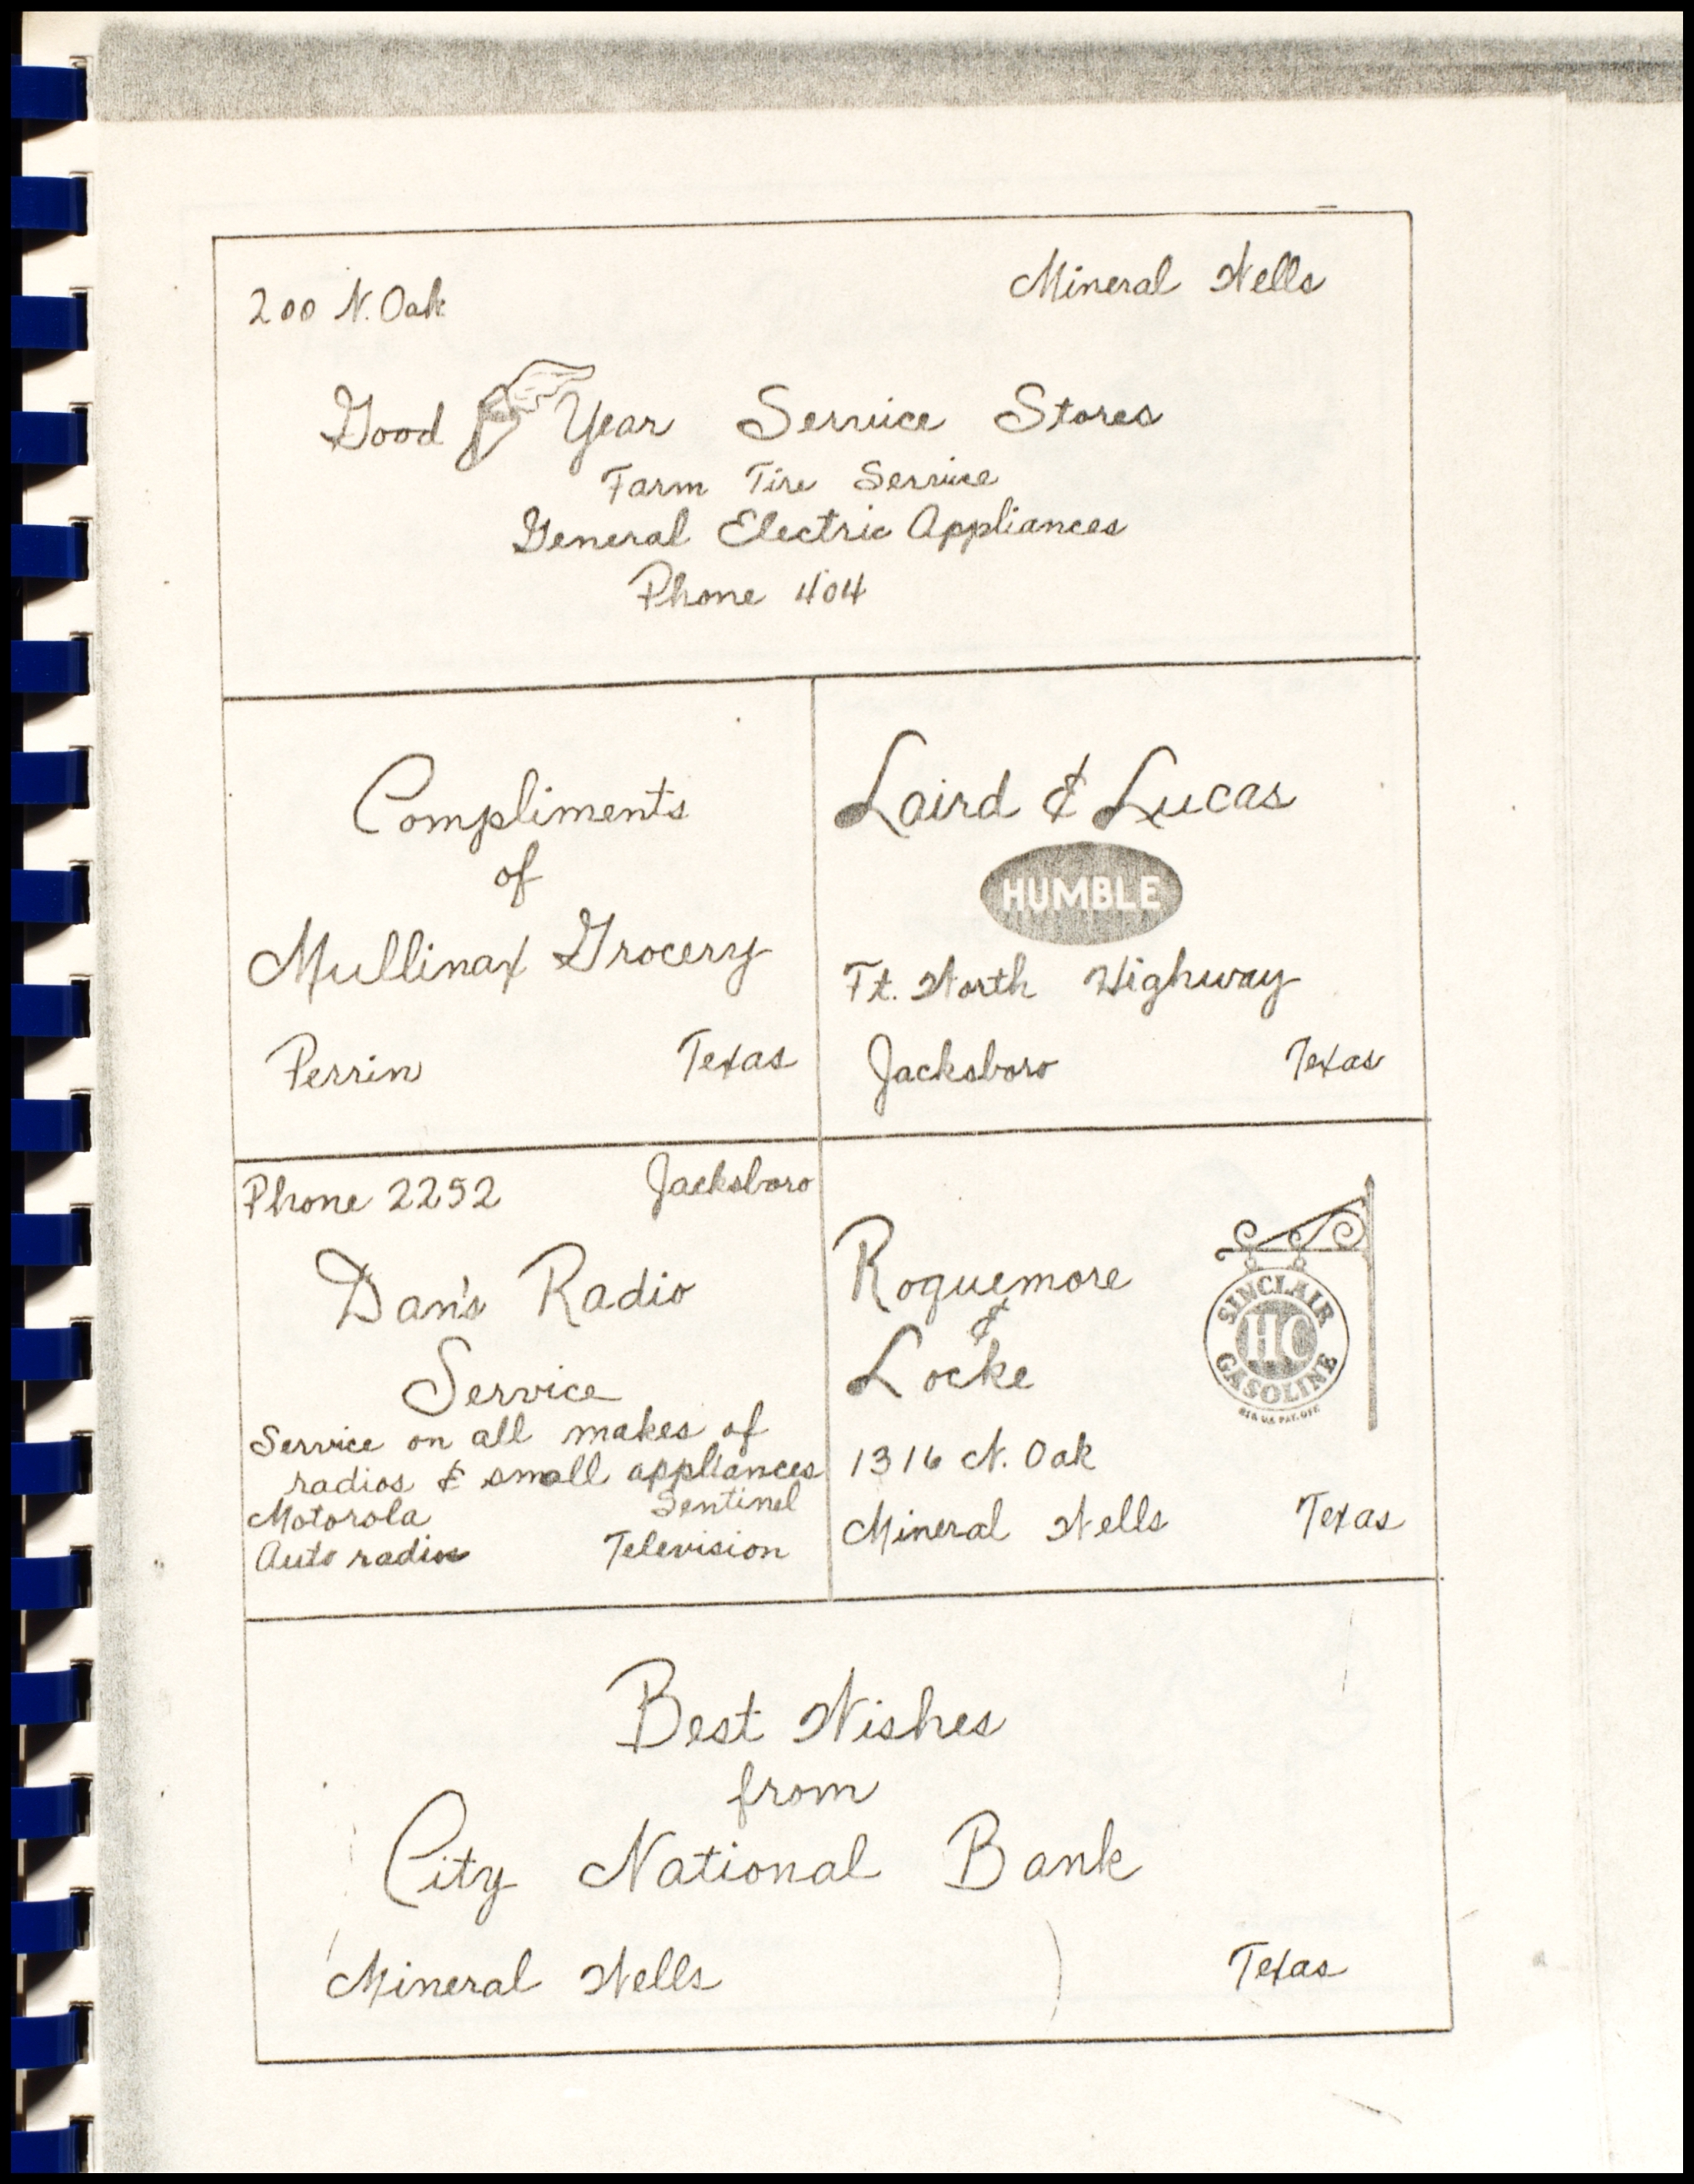 200 N. Oak Mineral Wells
Good Year Service Stores
Farm Tire Service
General Electric Appliances
Phone 404
Compliments
of
Mullinax Grocery
Perrin Texas
Laird & Lucas
HUMBLE
Ft. Worth Highway
Jacksboro Texas
Phone 2252 Jacksboro
Dan's Radio
Service
Service on all makes of
radios & small appliances
Motorola Sentinel
Auto radios Television
Roquemore
&
Locke
SINCLAIR
HC
GASOLINE
REG. U.S. PAT. OFF.
1316 N. Oak
Mineral Wells Texas
Best Wishes
from
City National Bank
Mineral Wells Texas